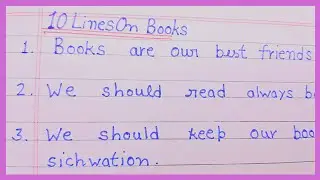 10 Lines On Books
1. Books are our best friends
2. We should read always b
3. We should keep our boo
sichwation.